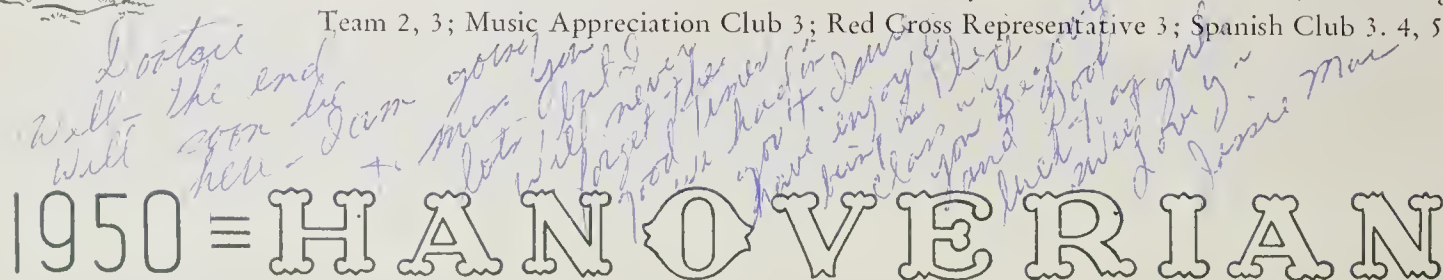 Team 2, 3; Music Appreciation Club 3; Red Cross Representative 3; Spanish Club 3. 4, 5
Dootsie
Well - the end
will soon be
here - I am going
to miss you
lots - but I
will never
forget the
good times
we had in
"Gov't". I sure
have enjoyed
being in the
class with
you. Best
and good
luck to a
sweet girl
Love ya
Jessie Mae
1950 HANOVERIAN